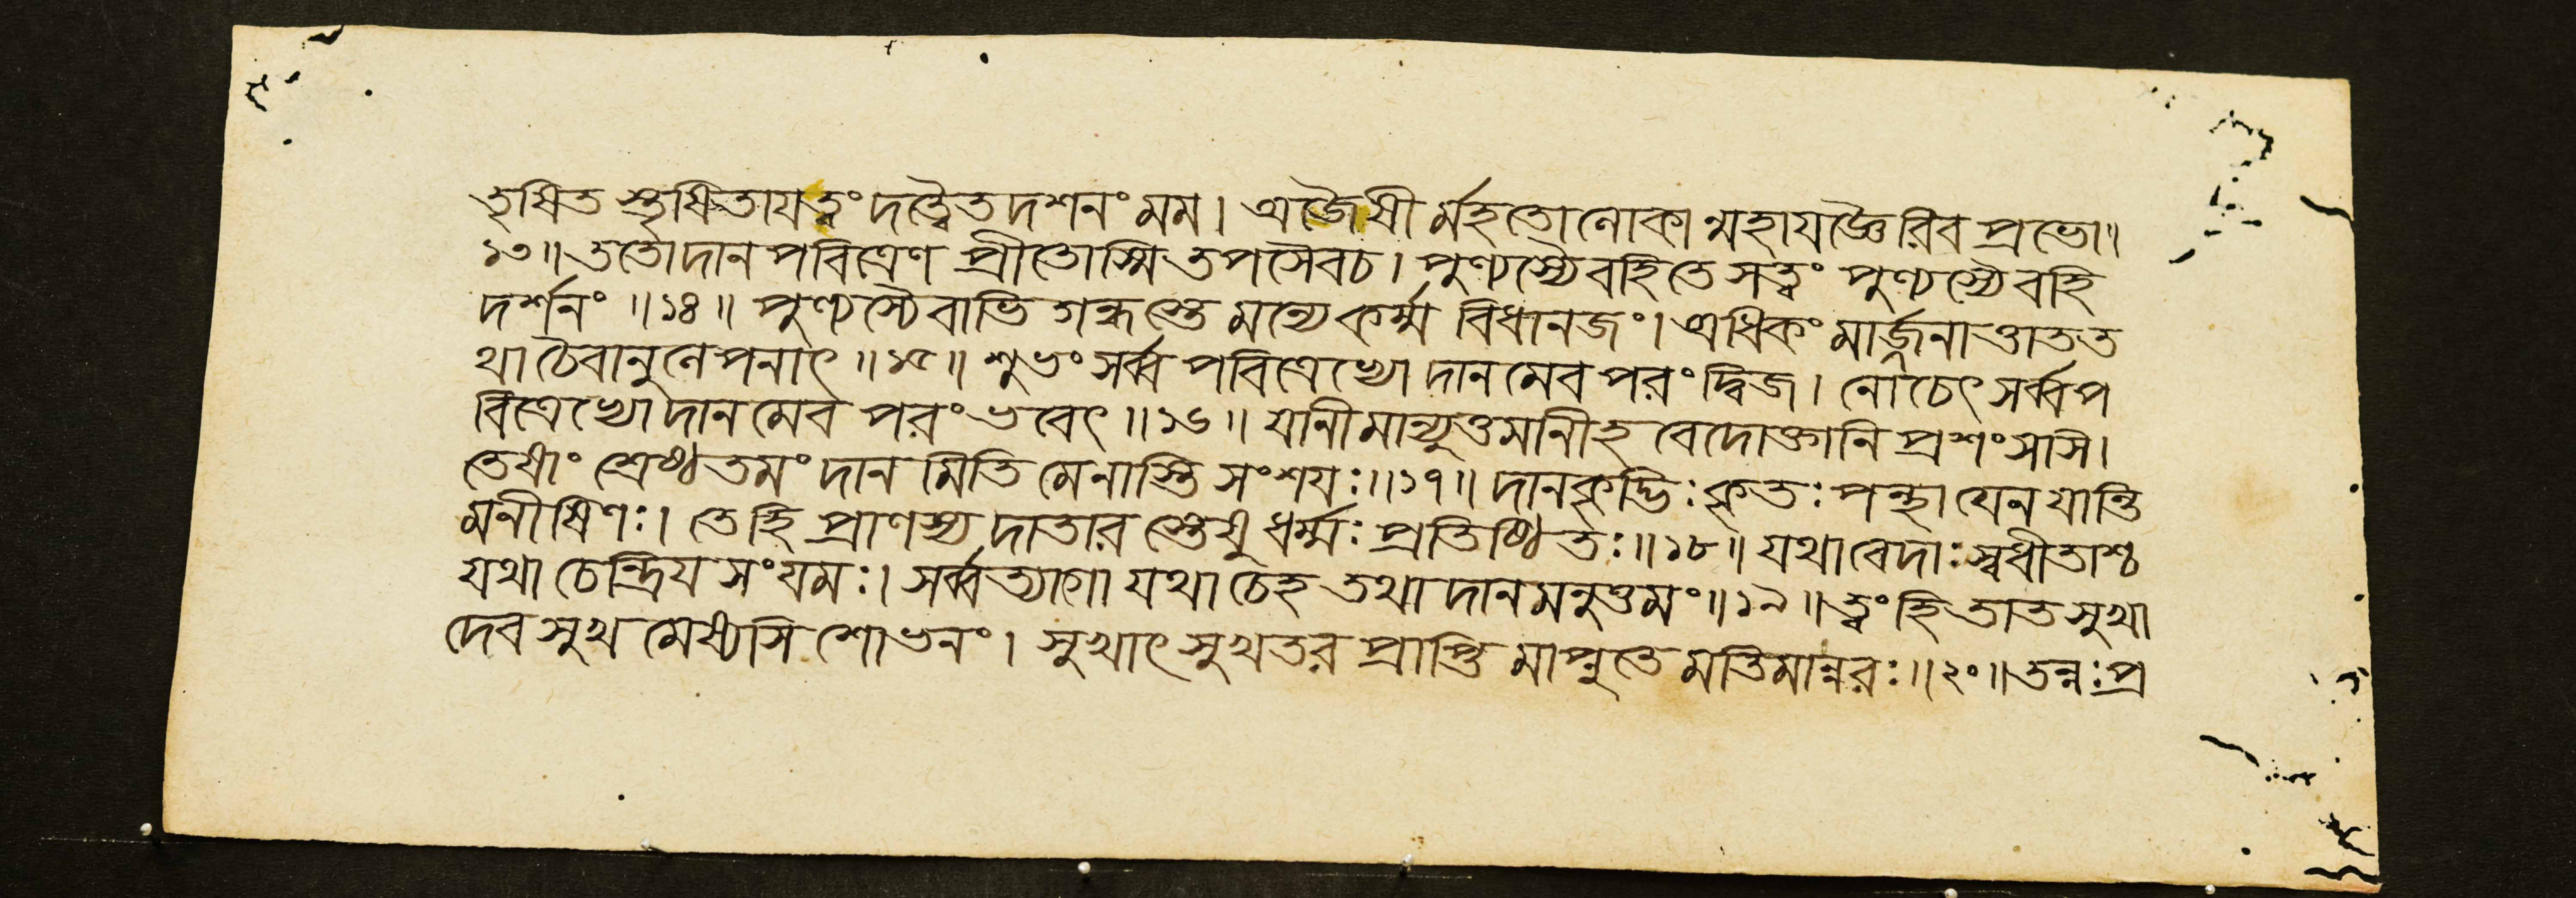 তৃষিত স্তৃষিতাযত্ত্বং দত্ত্বৈতদশনং মম। অজৈষী র্মহতো লোকান্মহাযজ্ঞৈরিব প্রভো॥
১৩॥ ততো দান পবিত্রেণ প্রীতোস্মি তপসৈবচ। পুণ্যস্যৈবহিতে সত্ত্বং পুণ্যস্যৈবহি
দর্শনং ॥১৪॥ পুণ্যস্যৈবাভি গন্ধস্তে মন্যে কর্ম্ম বিধানজং। অধিকং মার্জ্জনাত্তাতত
থাচৈবানুলেপনাৎ ॥১৫॥ শুভং সর্ব্ব পবিত্রেভ্যো দানমেব পরং দ্বিজ। নোচেৎ সর্ব্বপ
বিত্রেভ্যো দানমেব পরং ভবেৎ ॥১৬॥ যানীমান্যুত্তমানীহ বেদোক্তানি প্রশংসসি।
তেষাং শ্রেষ্ঠতমং দান মিতি মেনাস্তি সংশযঃ॥১৭॥ দানকৃদ্ভিঃ কৃতঃ পন্থা যেন যান্তি
মনীষিণঃ। তেহি প্রাণস্য দাতার স্তেষু ধর্ম্মঃ প্রতিষ্ঠিতঃ॥১৮॥ যথা বেদাঃ স্বধীতাশ্চ
যথা চেন্দ্রিয সংযমঃ। সর্ব্বত্যাগো যথা চেহ তথা দানমনুত্তমং॥১৯॥ ত্বং হি তাত সুখা
দেব সুখ মেষ্যসি শোভনং। সুখাৎ সুখতর প্রাপ্তি মাপ্নুতে মতিমান্নরঃ॥২০॥ তন্নঃ প্র